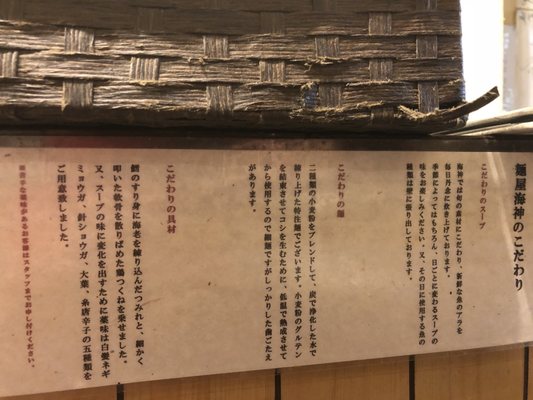 麺屋海神のこだわり
こだわりのスープ
海神では旬の素材にこだわり、新鮮な魚のアラを
毎日丹念に炊き上げております。
季節によってはもちろん、日ごとに変わるスープの
味をお楽しみください。又、その日に使用する魚の
種類は壁に張り出しております。
こだわりの麺
二種類の小麦粉をブレンドして、炭で浄化した水で
練り上げた特注麺でございます。小麦粉のグルテン
を結束させてコシを生むために、低温で熟成させて
から使用するので細麺ですがしっかりした歯ごたえ
があります。
こだわりの具材
鱈のすり身に海老を練り込んだつみれと、細かく
叩いた軟骨を散りばめた鶏つくねを乗せました。
又、スープの味に変化を出すために薬味は白髪ネギ
ミョウガ、針ショウガ、大葉、糸唐辛子の五種類を
ご用意致しました。
※苦手な薬味があるお客様はスタッフまでお申し付けください。